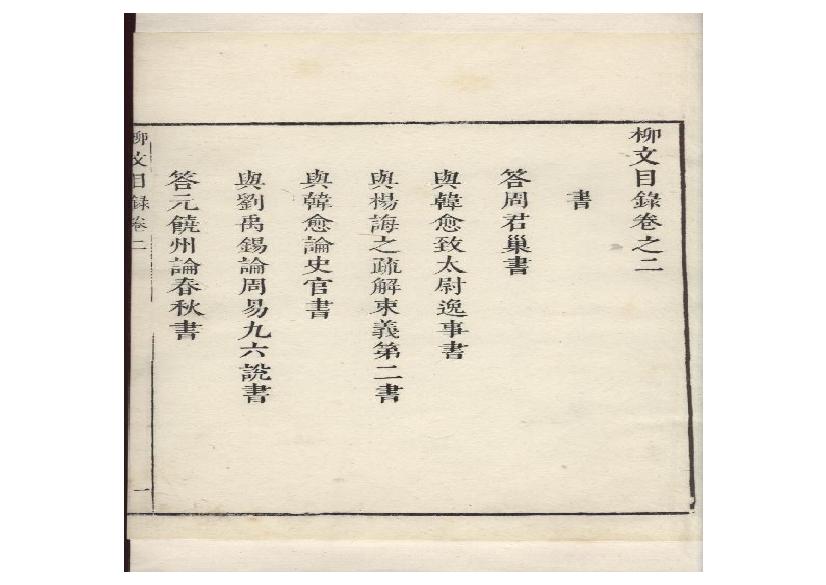 柳文目錄卷之二
書
答周君巢書
與韓愈致太尉逸事書
與楊誨之疏解束義第二書
與韓愈論史官書
與劉禹錫論周易九六說書
答元饒州論春秋書
柳文目錄卷二
一